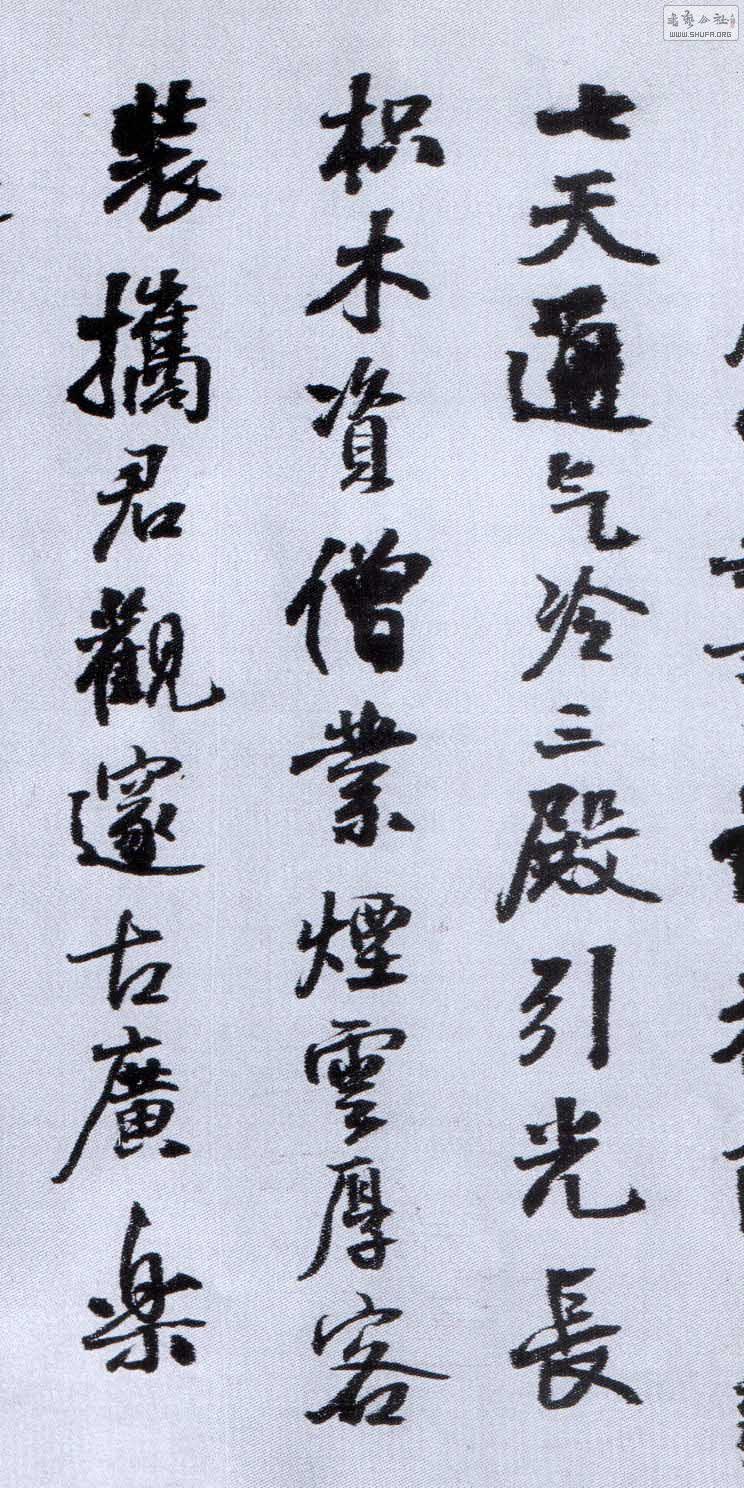 七天通气冷三殿引光長
枳木資僧業煙雲厚客
裝攜君觀邃古廣樂
书艺公社
WWW.SHUFA.ORG